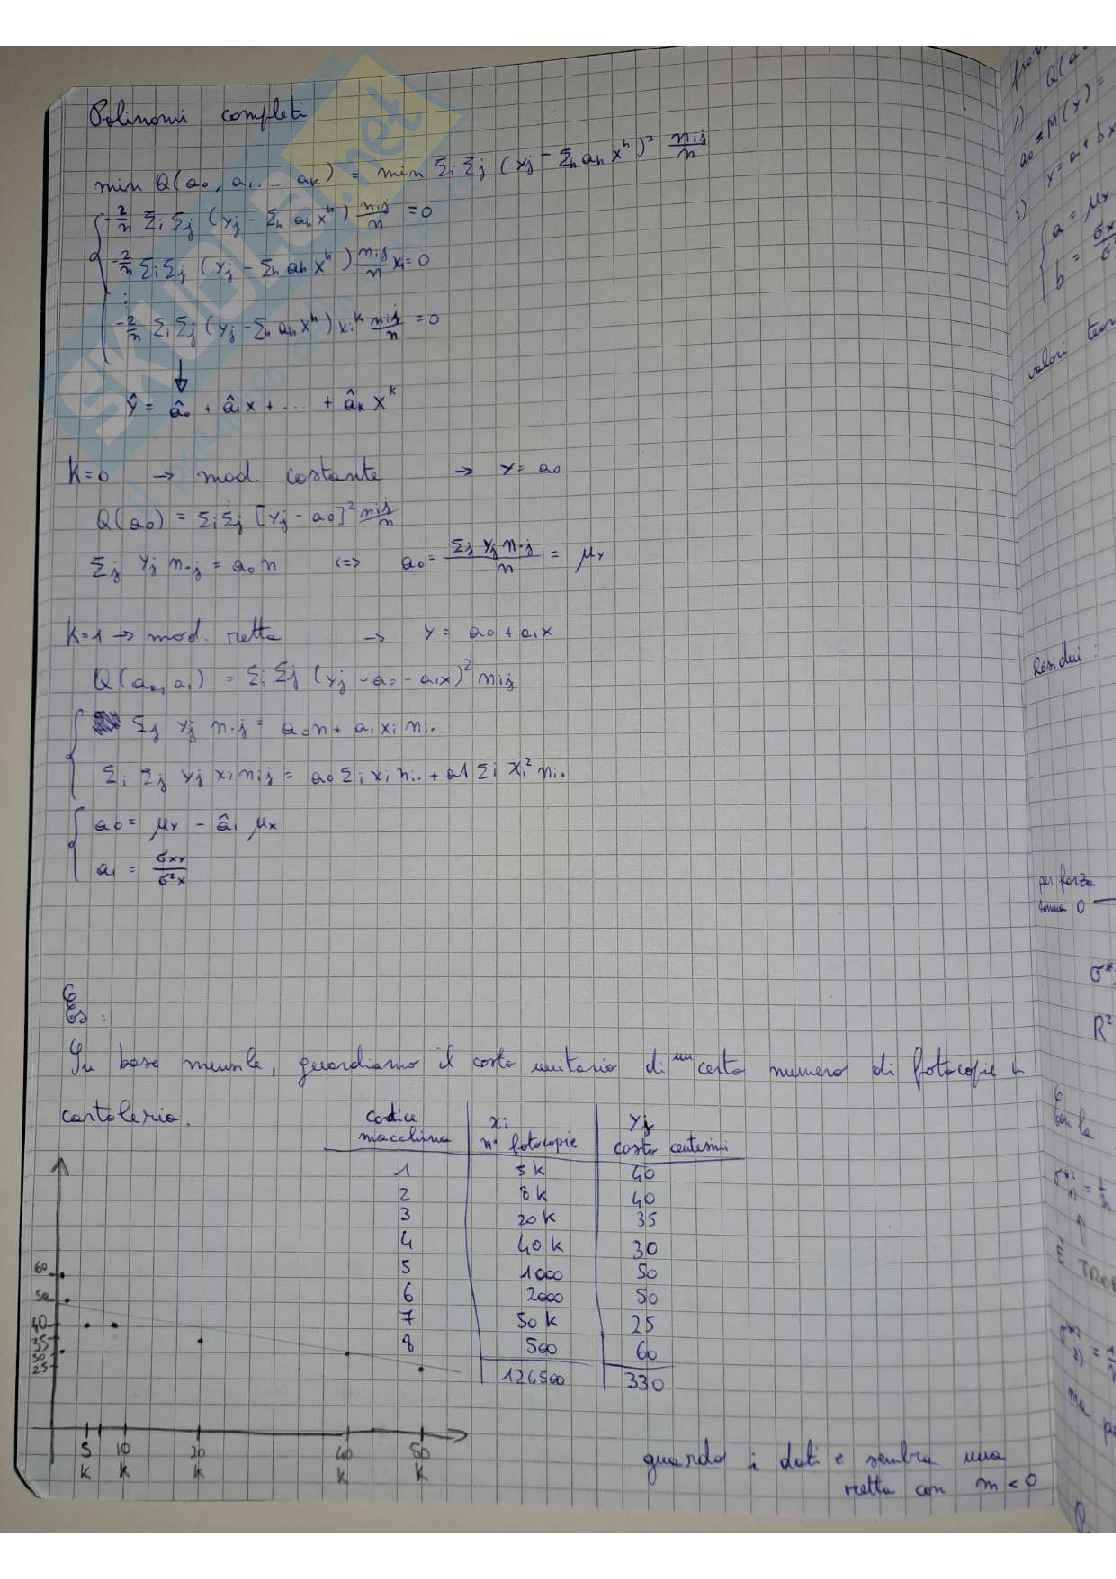 Polinomi completi
min Q(a₀, a₁, ... aₖ) = min Σᵢ Σⱼ (yⱼ - Σₕ aₕ xʰ)² nᵢⱼ/n
-2/n Σᵢ Σⱼ (yⱼ - Σₕ aₕ xʰ) nᵢⱼ/n = 0
-2/n Σᵢ Σⱼ (yⱼ - Σₕ aₕ xʰ) nᵢⱼ/n xᵢ = 0
:
-2/n Σᵢ Σⱼ (yⱼ - Σₕ aₕ xʰ) xᵢᵏ nᵢⱼ/n = 0
↓
Ŷ = â₀ + â₁x + .... + âₖ xᵏ
K=0 → mod. costante → Y = a₀
Q(a₀) = Σᵢ Σⱼ [yⱼ - a₀]² nᵢⱼ/n
Σⱼ yⱼ n.ⱼ = a₀ n <=> a₀ = Σⱼ yⱼ n.ⱼ / n = μY
K=1 → mod. retta → Y = a₀ + a₁x
Q(a₀, a₁) = Σᵢ Σⱼ (yⱼ - a₀ - a₁x)² nᵢⱼ
Σⱼ yⱼ n.ⱼ = a₀n + a₁ xᵢ nᵢ.
Σᵢ Σⱼ yⱼ xᵢ nᵢⱼ = a₀ Σᵢ xᵢ nᵢ. + a1 Σᵢ xᵢ² nᵢ.
a₀ = μY - â₁ μX
a₁ = σXY / σ²X
Es:
Su base mensile, guardiamo il costo unitario di un certo numero di fotocopie in
cartoleria.
codice macchina | xᵢ n° fotocopie | yⱼ costo centesimi
1 5K 40
2 8K 40
3 20K 35
4 40K 30
5 1000 50
6 2000 50
7 50K 25
8 500 60
126500 330
60
50
40
35
30
25
5K 10K 20K 40K 50K
guardo i dati e sembra una
retta con m < 0
1)
a₀ = M(Y) =
2)
a = μY
b =
valori teor
Residui:
per forza
somma 0
R²
SKUOLA.net